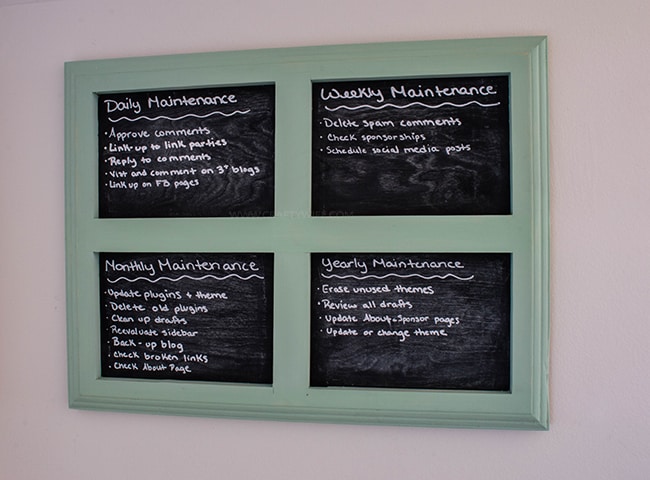 Daily Maintenance
• Approve comments
• Link-up to link parties
• Reply to comments
• Vist and comment on 3+ blogs
• Link up on FB pages
Weekly Maintenance
• Delete spam comments
• Check sponsorships
• Schedule social media posts
Monthly Maintenance
• Update plugins & theme
• Delete old plugins
• Clean up drafts
• Reevaluate sidebar
• Back-up blog
• Check broken links
• Check About Page
Yearly Maintenance
• Erase unused themes
• Review all drafts
• Update About + Sponsor pages
• Update or change theme